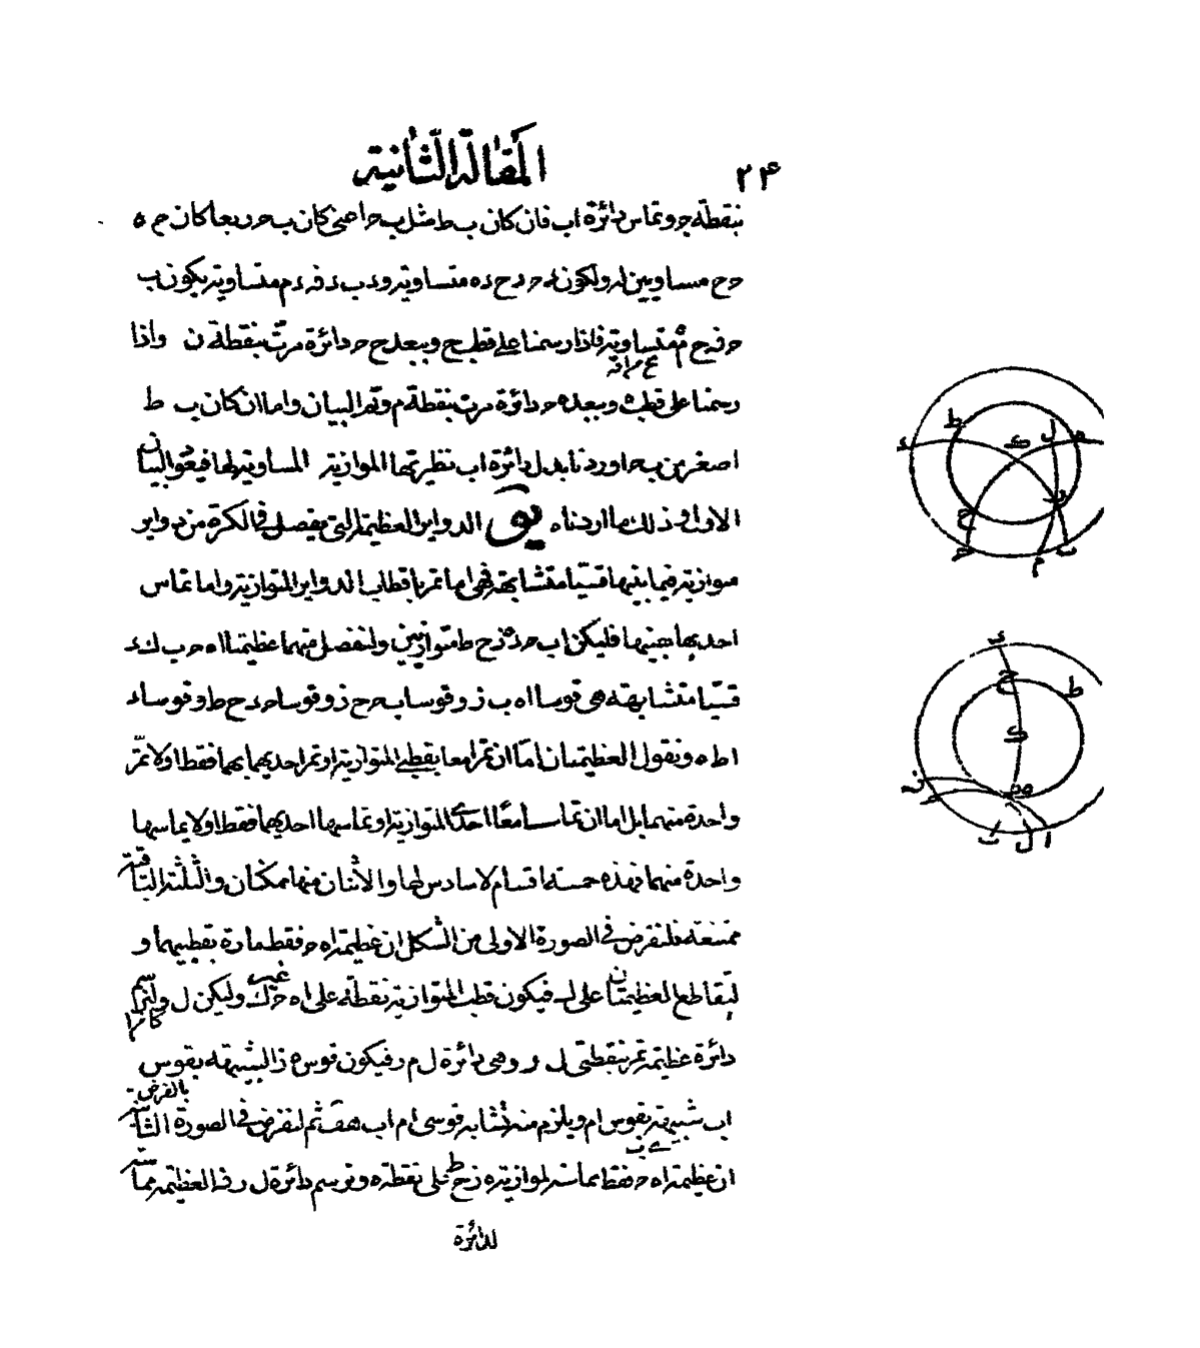 المقالة الثانية
٢۴
بنقطة ح وتماس دائرة اب فان كان ب ط مثل ب ح اعنى كان ب ح ربعا كان ح ه
ح ح مساويين له ولكون ء ح ء ح ء ه متساوية و ء ب ء ف ء م متساوية يكون ب
ح ف ح م ه متساوية فاذا رسمنا على قطب ح وببعد ح ح دائرة مرت بنقطة ن واذا
رسمنا على قطب ه وببعد ه ح دائرة مرت بنقطة م وتم البيان واما ان كان ب ط
اصغر من ب ح اوردنا بدل دائرة اب نظيرتها الموازية المساوية لها فيعود البيان
الاول وذلك ما اردناه يو الدواير العظيمة التى يفصل فى الكرة من دواير
موازية فيما بينها قسيا متشابهة فهى اما تمر باقطاب الدواير المتوازية واما تماس
احديها بعينها فليكن اب ح ء ه ز ح ط متوازيين ولنفصل منهما عظيمتا ا ه ح ب ك ء
قسيا متشابهة هى قوسا ا ه ب ز وقوسا ب ح ح ز وقوسا ح ء ح ط وقوسا ء
ا ط ه ونقول العظيمتان اما ان تمرا معا بقطبى المتوازية او تمر احديهما بهما فقط او لا تمر
واحدة منهما بل اما ان تماسا معا احدى المتوازية او تماسها احديهما فقط او لا يماسها
واحدة منهما فهذه خمسة اقسام لا سادس لها والاثنان منها ممكنان والثلثة الباقية
ممتنعة فلنفرض فى الصورة الاولى من الشكل ان عظيمة ا ه ح فقط مارة بقطبيهما و
ليتقاطع العظيمتان على ك فيكون قطب المتوازية نقطة على ا ه ح غير ك وليكن ل ولنرسم
كا مرا
دائرة عظيمة تمر بنقطتى ل ر وهى دائرة ل م ر فيكون قوس ه ز الشبيهة بقوس
بالفرض
اب شبيهة بقوس ا م ويلزم منه تشابه قوسى ا م اب هف ثم لنفرض فى الصورة الثانية
ان عظيمة ا ه ح فقط يماس لموازية ه ز ح ط على نقطة ه ونرسم دائرة ل ر ف العظيمة مماسة
للدائرة